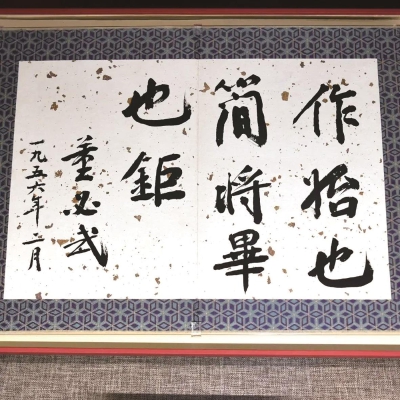 作始也
简將畢
也鉅
董必武
一九五六年二月